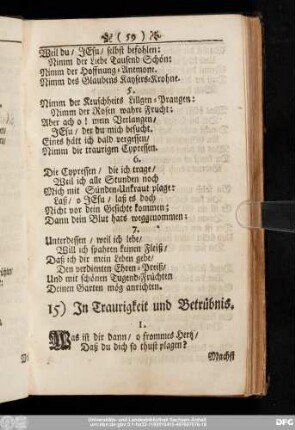 ( 59 )
Weil du / JEsu / selbst befohlen:
Nimm der Liebe Tausend Schön:
Nimm der Hoffnung-Anemone.
Nimm des Glaubens Kaysers-Krohne.
5.
Nimm der Keuschheits Lilgen-Prangen:
Nimm der Rosen wahre Frucht:
Aber ach o! mein Verlangen/
JEsu / der du mich besucht.
Eines hätt ich bald vergessen/
Nimm die traurigen Cypressen.
6.
Die Cypressen / die ich trage/
Weil ich alle Stunden noch
Mich mit Sünden-Unkraut plage:
Laß / o JEsu / laß es doch
Nicht vor dein Gesichte kommen:
Dann dein Blut hats weggenommen:
7.
Unterdessen / weil ich lebe/
Will ich spahren keinen Fleiß/
Daß ich dir mein Leben gebe/
Den verdienten Ehren-Preiß/
Und mit schönen Tugend-Früchten
Deinen Garten mög anrichten.
15) In Traurigkeit und Betrübnis.
1.
Was ist dir dann / o frommes Hertz/
Daß du dich so thust plagen?
Machst
Universitäts- und Landesbibliothek Sachsen-Anhalt